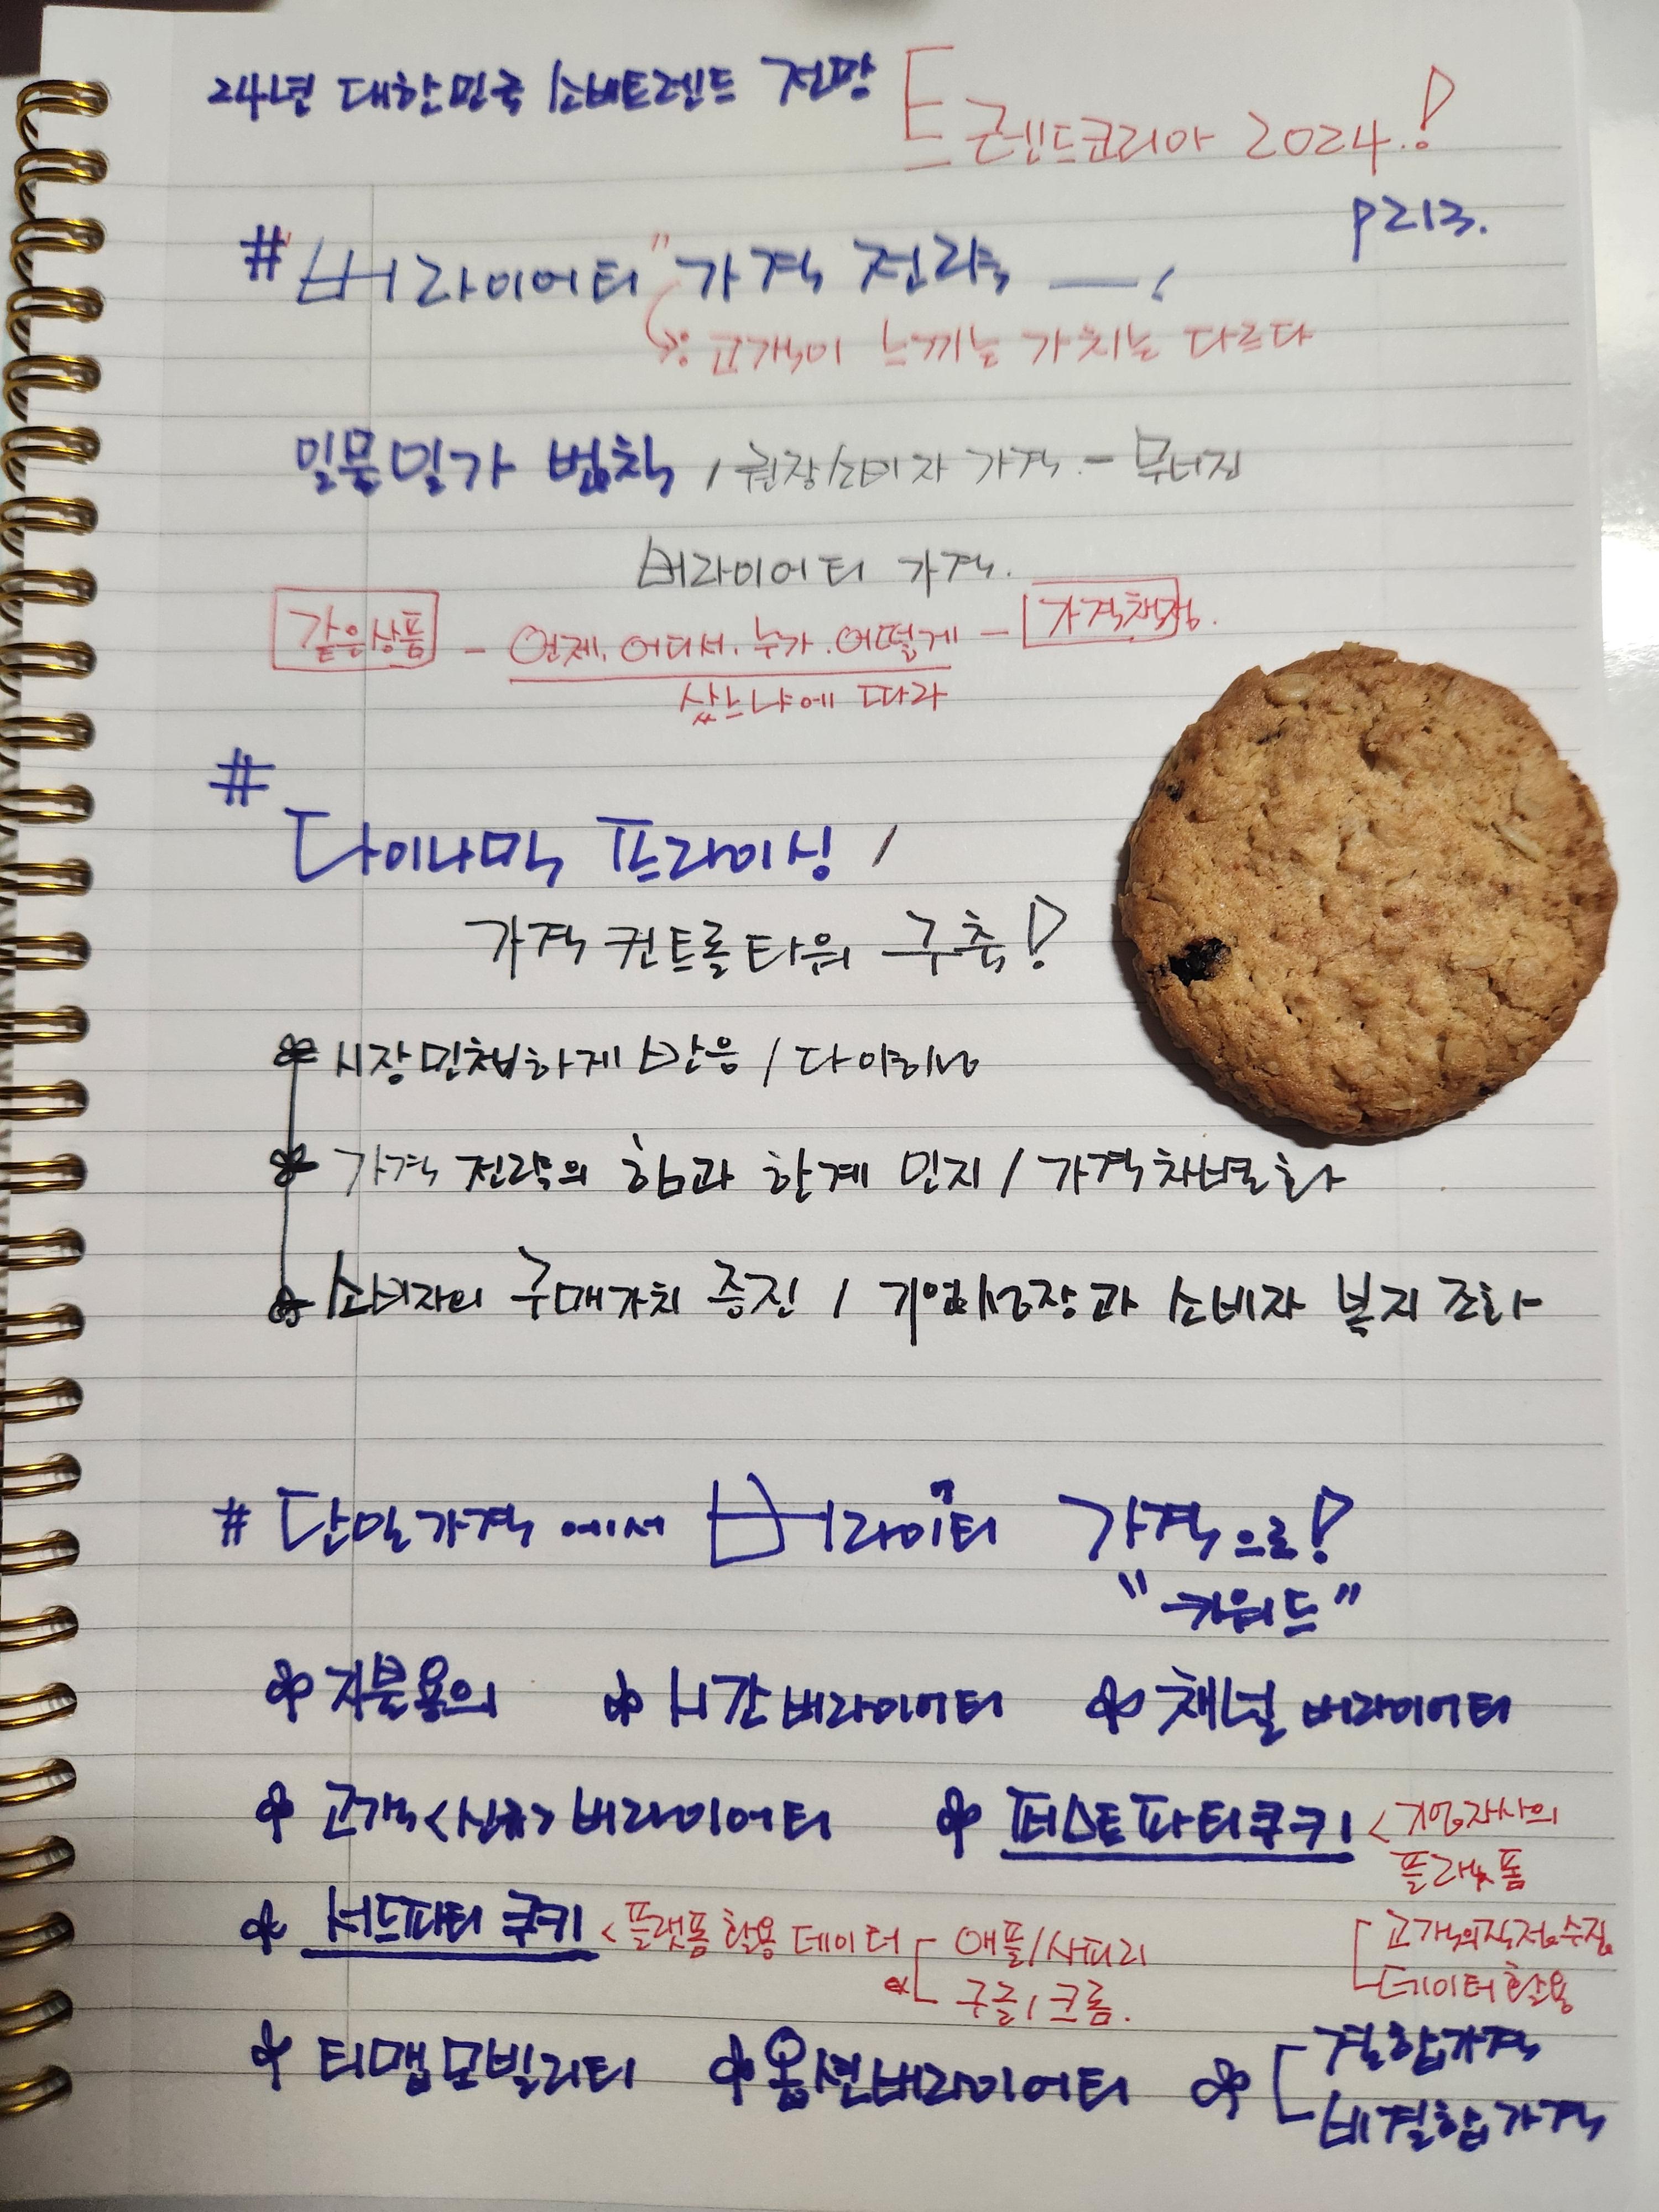 24년 대한민국 소비트렌드 전망
트렌드코리아 2024.!
p213.
# "버라이어티" 가격 전략 —,
: 고객이 느끼는 가치는 다르다
일물일가 법칙 / 권장소비자 가격 - 무너짐
버라이어티 가격.
같은상품 - 언제, 어디서, 누가, 어떻게 - 가격책정.
샀느냐에 따라
#
다이나믹 프라이싱 /
가격 컨트롤 타워 구축!
시장 민첩하게 반응 /
가격 전략의 힘과 한계 인지 / 가격차별화
소비자의 구매가치 증진 / 기업성장과 소비자 복지 조화
# 단일가격에서 버라이어티 가격으로!
"키워드"
지불용의 시간버라이어티 채널 버라이어티
고객<신규>버라이어티 퍼스트파티쿠키 <기업자사의
플랫폼
서드파티 쿠키 <플랫폼 활용 데이터 애플/사파리
구글/크롬.
고객의직접수집
데이터활용
티맵모빌리티 옵션버라이어티 결합가격
비결합가격